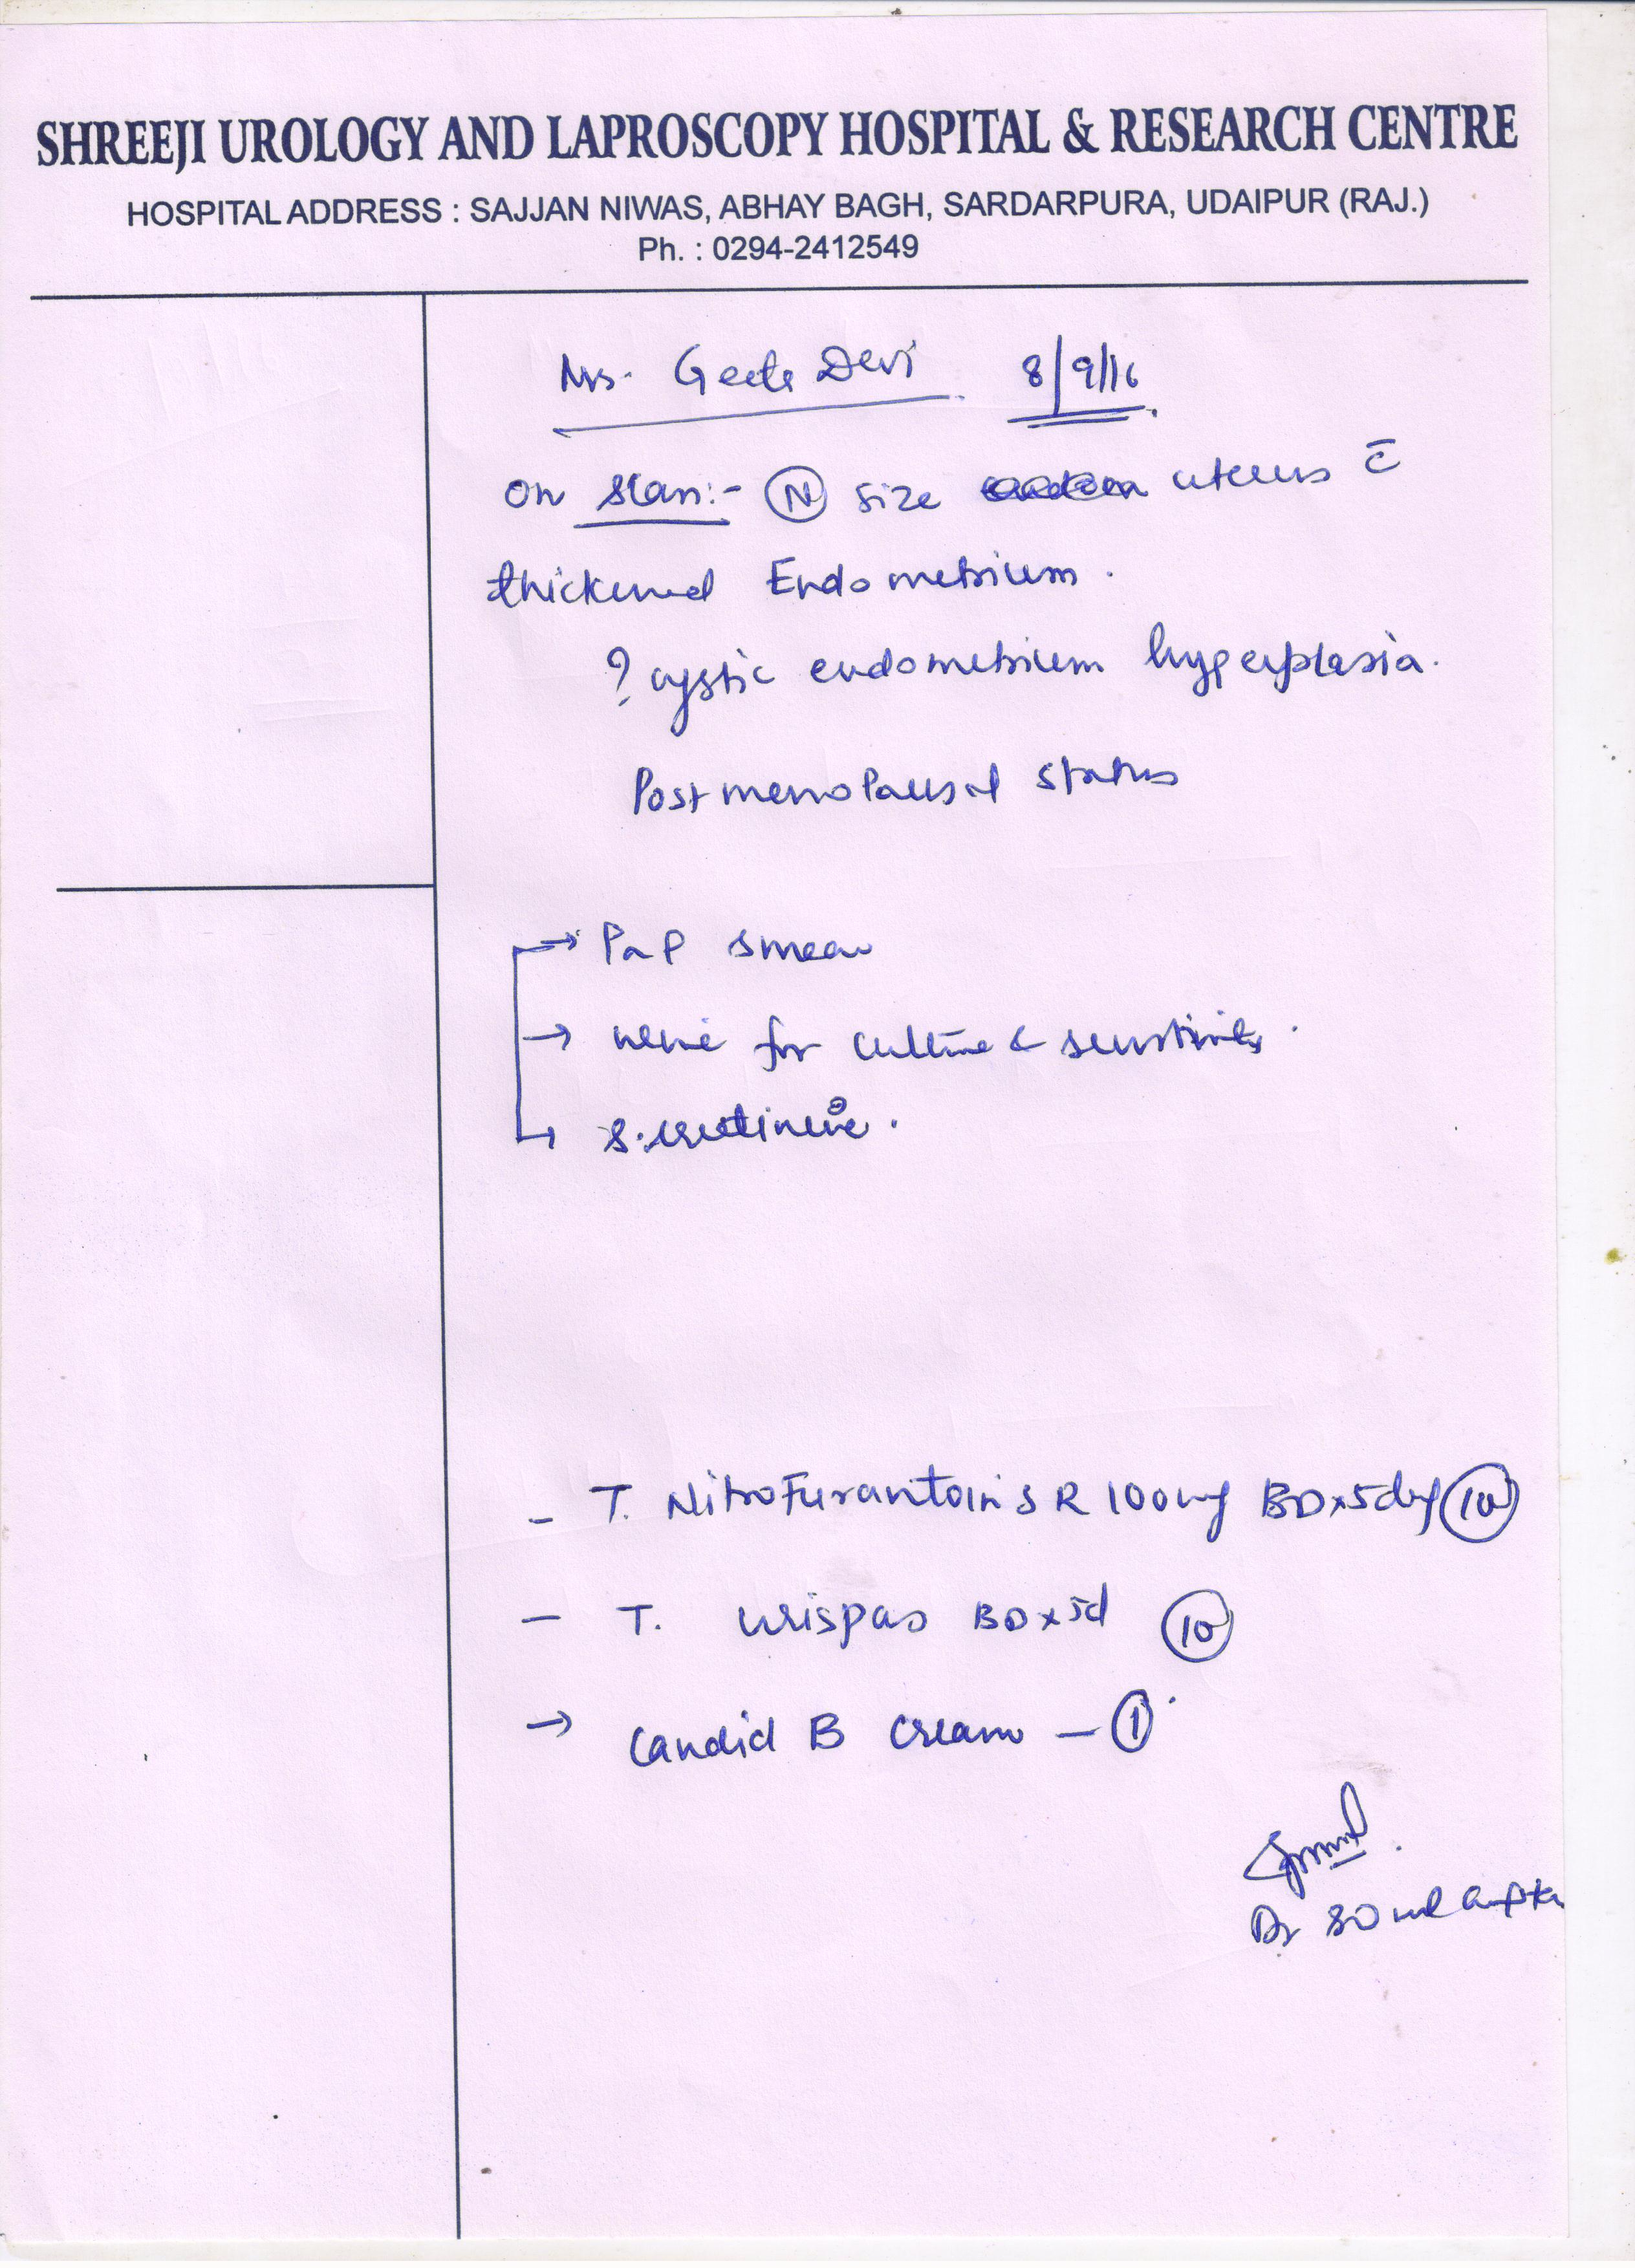 SHREEJI UROLOGY AND LAPROSCOPY HOSPITAL & RESEARCH CENTRE
HOSPITAL ADDRESS : SAJJAN NIWAS, ABHAY BAGH, SARDARPURA, UDAIPUR (RAJ.)
Ph. : 0294-2412549
Mrs. Geeta Devi 8/9/16
On Scan:- (N) size uterus c̄
thickened Endometrium.
? cystic endometrium hyperplasia.
Postmenopausal status
→ Pap smear
→ urine for culture & sensitivity.
→ S. creatinine.
- T. Nitrofurantoin SR 100mg BD x 5day (10)
- T. Urispas BD x 5d (10)
→ Candid B Cream - (1)
Dr Gupta